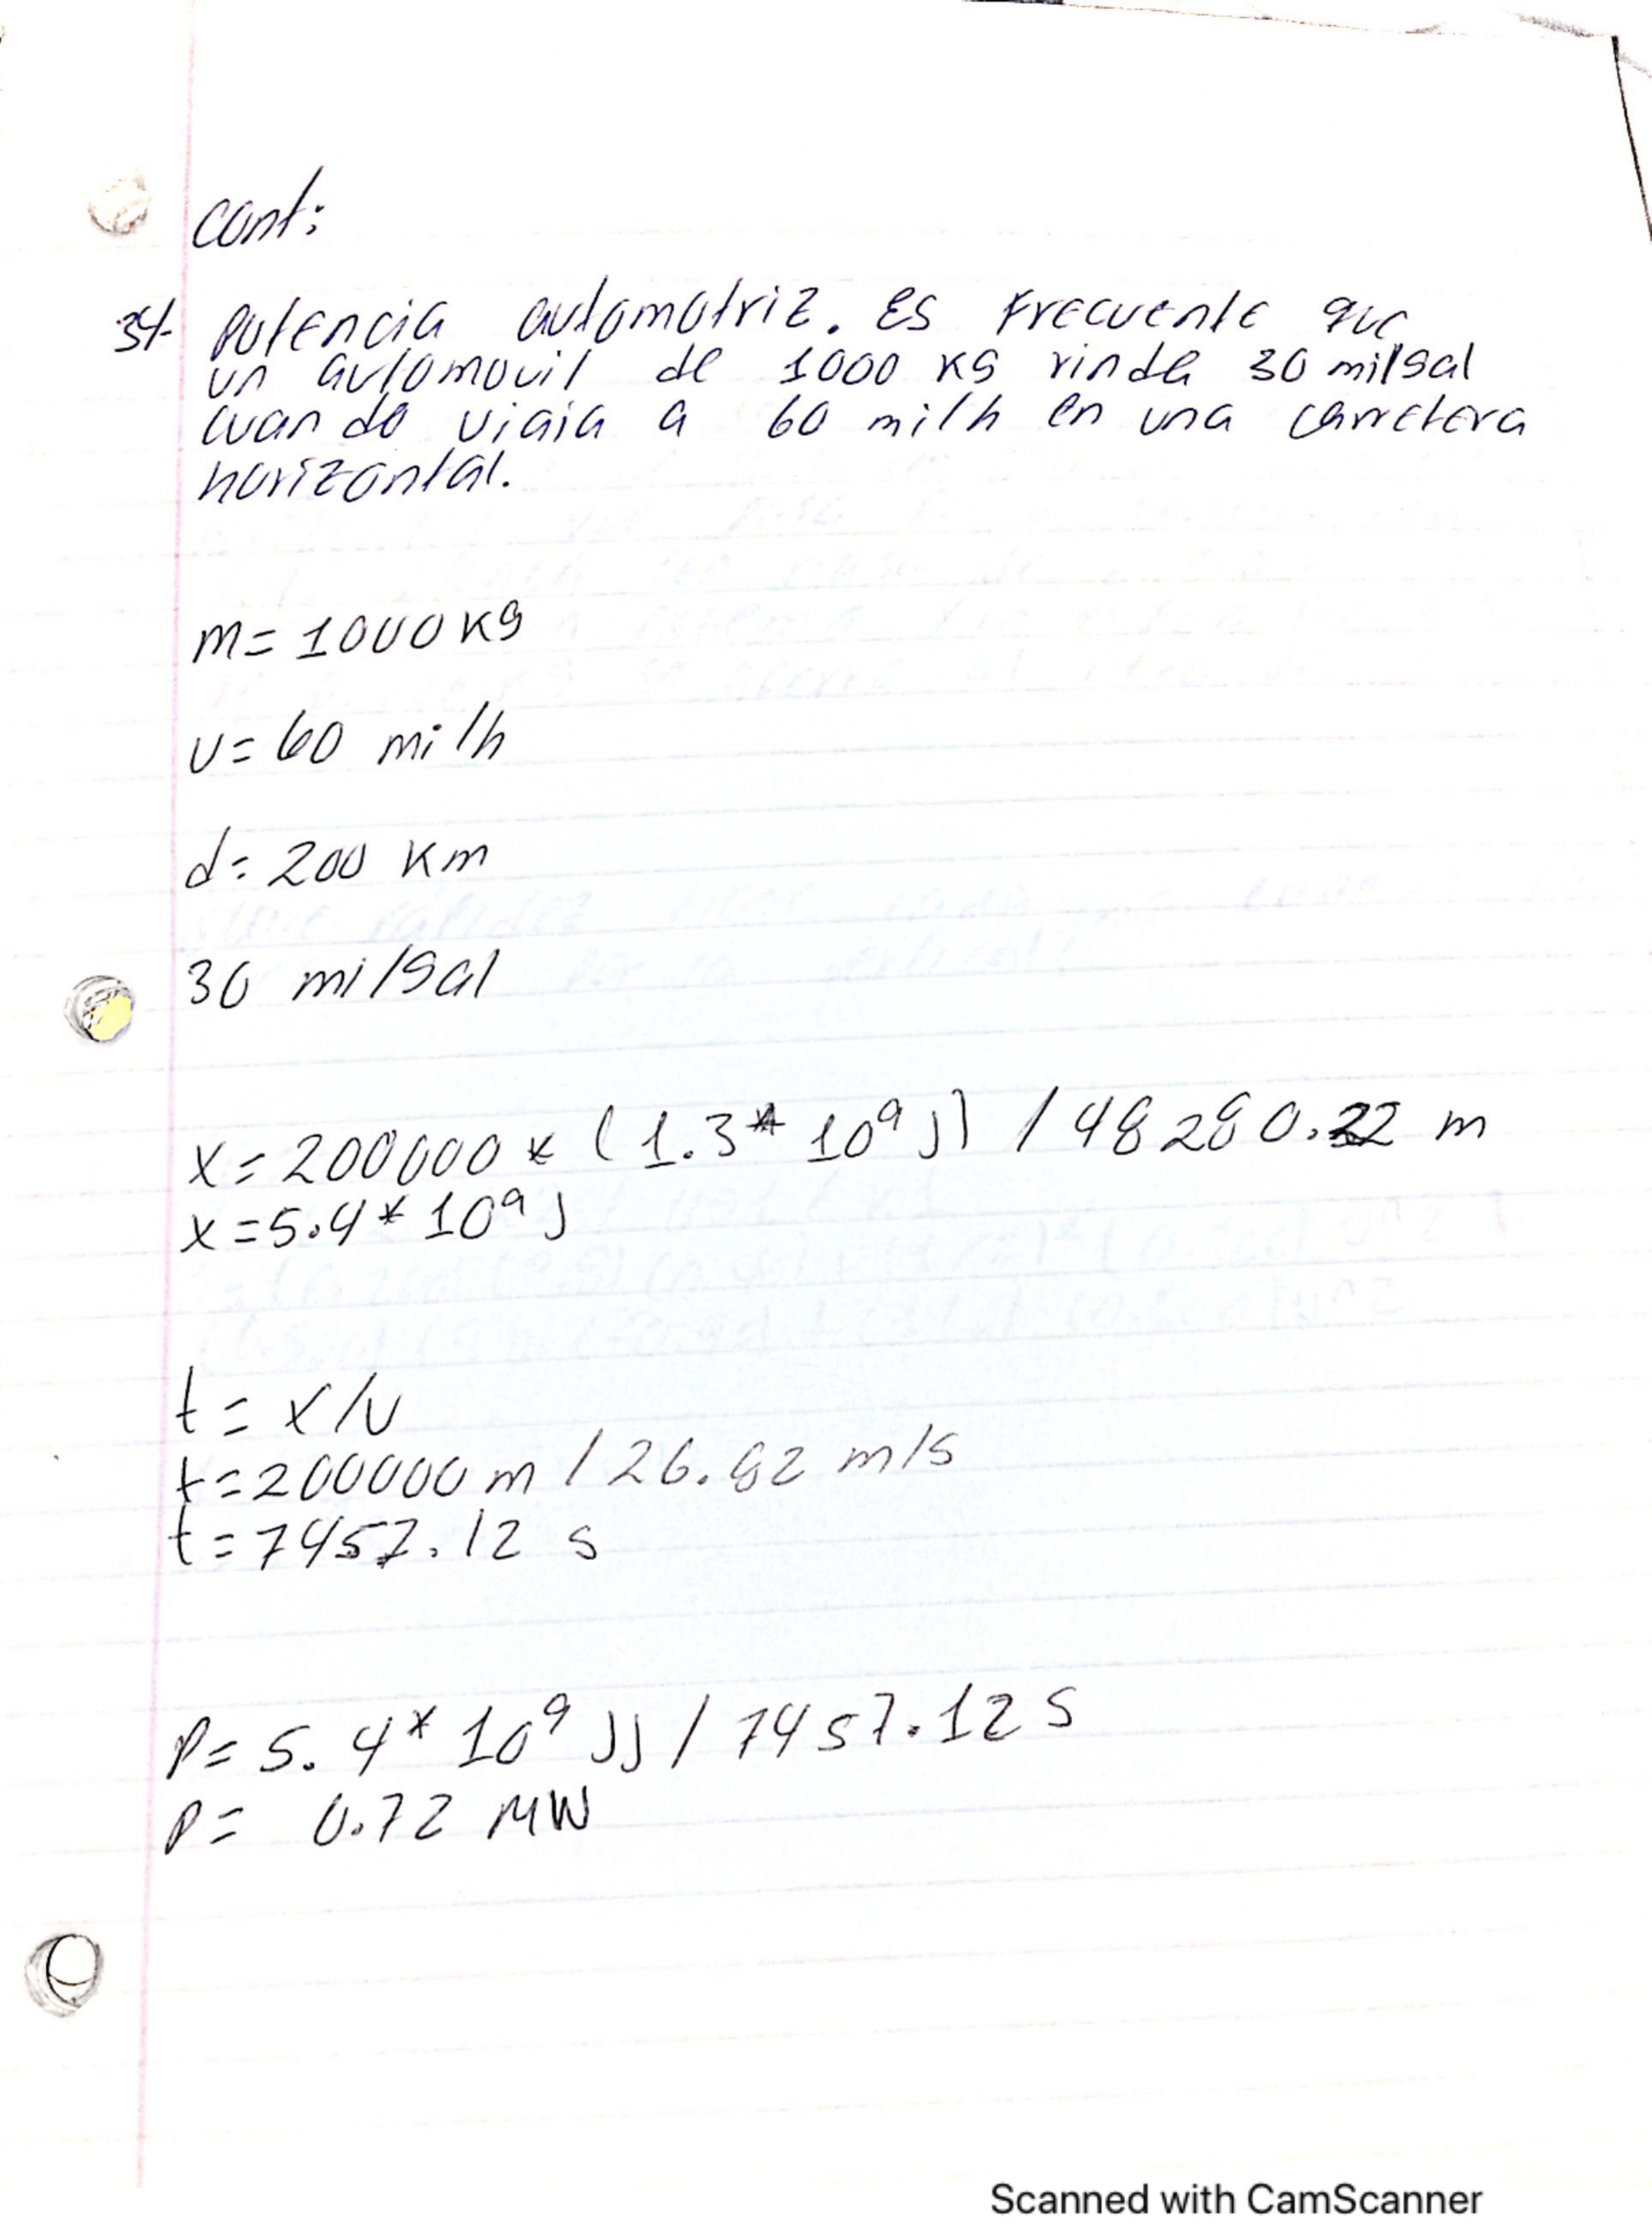 cont:
34- potencia automotriz. es frecuente que
un automovil de 1000 kg rinda 30 mi/gal
cuando viaja a 60 mi/h en una carretera
horizontal.
m= 1000 kg
v= 60 mi/h
d= 200 km
30 mi/gal
x= 200000 * (1.3* 10⁹ J) / 48280.22 m
x = 5.4 * 10⁹ J
t= x/v
t= 200000 m / 26.82 m/s
t= 7457.12 s
P= 5.4* 10⁹ JJ / 7457.12 s
P= 0.72 MW
Scanned with CamScanner